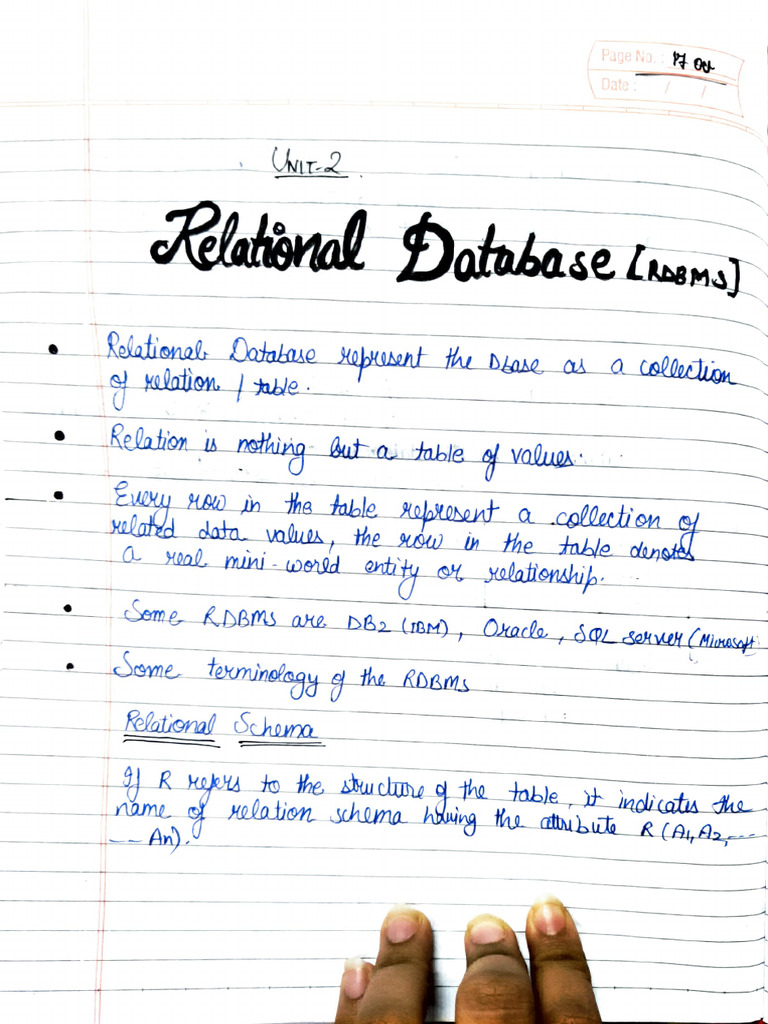 Page No.:
Date: / /
UNIT-2
Relational Database [RDBMS]
• Relational Database represent the Dbase as a collection
of relation / table.
• Relation is nothing but a table of values.
• Every row in the table represent a collection of
related data values, the row in the table denotes
a real mini-world entity or relationship.
• Some RDBMS are DB2 (IBM), Oracle, SQL server (Microsoft
• Some terminology of the RDBMS
Relational Schema
If R refers to the structure of the table, it indicates the
name of relation schema having the attribute R(A1,A2,---
--- An).